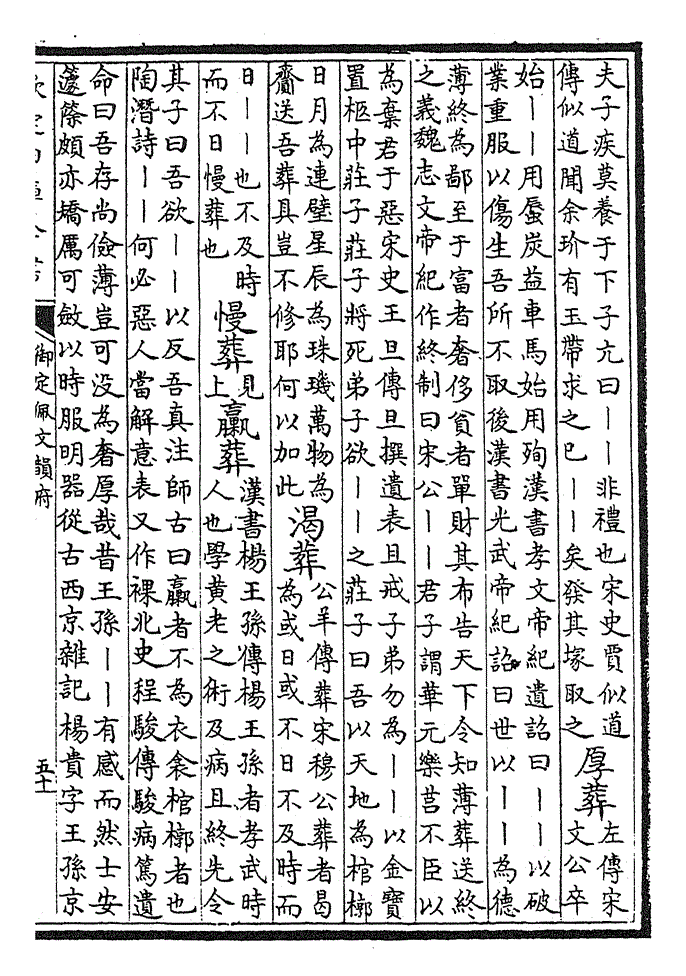 夫子疾莫養于下子亢曰丨丨非禮也宋史賈似道
傳似道聞余玠有玉帶求之已丨丨矣發其塚取之
厚葬
左傳宋
文公卒
始丨丨用蜃炭益車馬始用殉漢書孝文帝紀遺詔曰丨丨以破
業重服以傷生吾所不取後漢書光武帝紀詔曰世以丨丨為德
薄終為鄙至于富者奢侈貧者單財其布告天下令知薄葬送終
之義魏志文帝紀作終制曰宋公丨丨君子謂華元樂莒不臣以
為棄君于惡宋史王旦傳旦撰遺表且戒子弟勿為丨丨以金寶
置柩中莊子莊子將死弟子欲丨丨之莊子曰吾以天地為棺槨
日月為連璧星辰為珠璣萬物為
齎送吾葬具豈不修耶何以加此
渴葬
公羊傳葬宋穆公葬者曷
為或日或不日不及時而
日丨丨也不及時
而不日慢葬也
慢葬
見
上
臝葬
漢書楊王孫傳楊王孫者孝武時
人也學黃老之術及病且終先令
其子曰吾欲丨丨以反吾真注師古曰臝者不為衣衾棺槨者也
陶潛詩丨丨何必惡人當解意表又作裸北史程駿傳駿病篤遺
命曰吾存尚儉薄豈可没為奢厚哉昔王孫丨丨有感而然士安
籧篨頗亦矯厲可斂以時服明器從古西京雜記楊貴字王孫京
欽定四庫全書
御定佩文韻府
五十